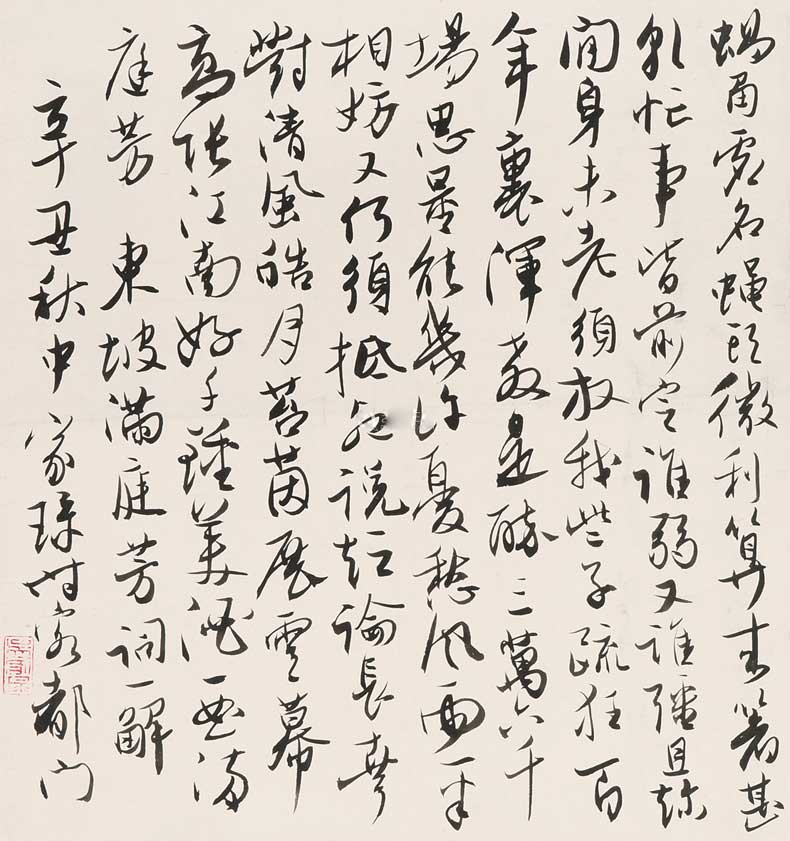 蝸角虛名蠅頭微利算来著甚
乾忙事皆前定誰弱又誰彊且趂
閒身未老須放我些子疏狂百
年裏渾教是醉三萬六千
場思量能幾許憂愁風雨一半
相妨又何須抵死説短論長幸
對清風皓月苔茵展雲幕
高張江南好千鍾美酒一曲滿
庭芳 東坡滿庭芳詞一解
辛丑秋中家琭時客都門